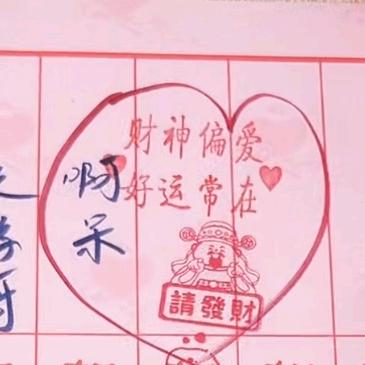 财神偏爱
好运常在
啊呆
請發財